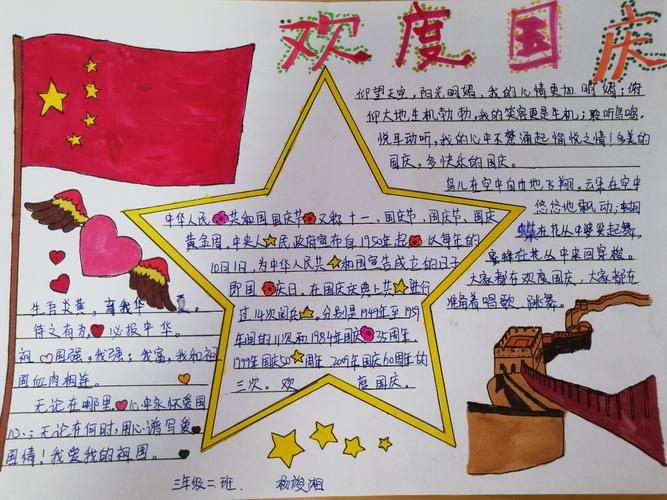 欢度国庆
仰望天空，阳光明媚，我的心情更加明媚；俯
仰大地生机勃勃，我的笑容更是生机；聆听鸟鸣，
悦耳动听，我的心中不禁涌起愉悦之情！多美的
国庆，多快乐的国庆。
鸟儿在空中自由地飞翔，云朵在空中
悠悠地飘动，蝴
蝶在花丛中翩翩起舞，
蜜蜂在花丛中来回穿梭。
大家都在欢度国庆，大家都在
准备着唱歌、跳舞。
中华人民共和国国庆节又称十一、国庆节、国庆
黄金周，中央人民政府宣布自1950年起以每年的
10月1日，为中华人民共和国宣告成立的日子
即国庆日，在国庆庆典上共进行
过14次阅兵，分别是1949年至1959
年间的11次和1984年国庆35周年，
1999年国庆50周年，2009年国庆60周年的
三次。欢度国庆。
生吾炎黄，育我华夏，
待之有为，必报中华。
祖国强，我强；我富，我和祖
国血肉相连。
无论在哪里，心中永怀爱国
心；无论在何时，用心谱写爱
国情！我爱我的祖国。
三年级二班. 杨竣湘